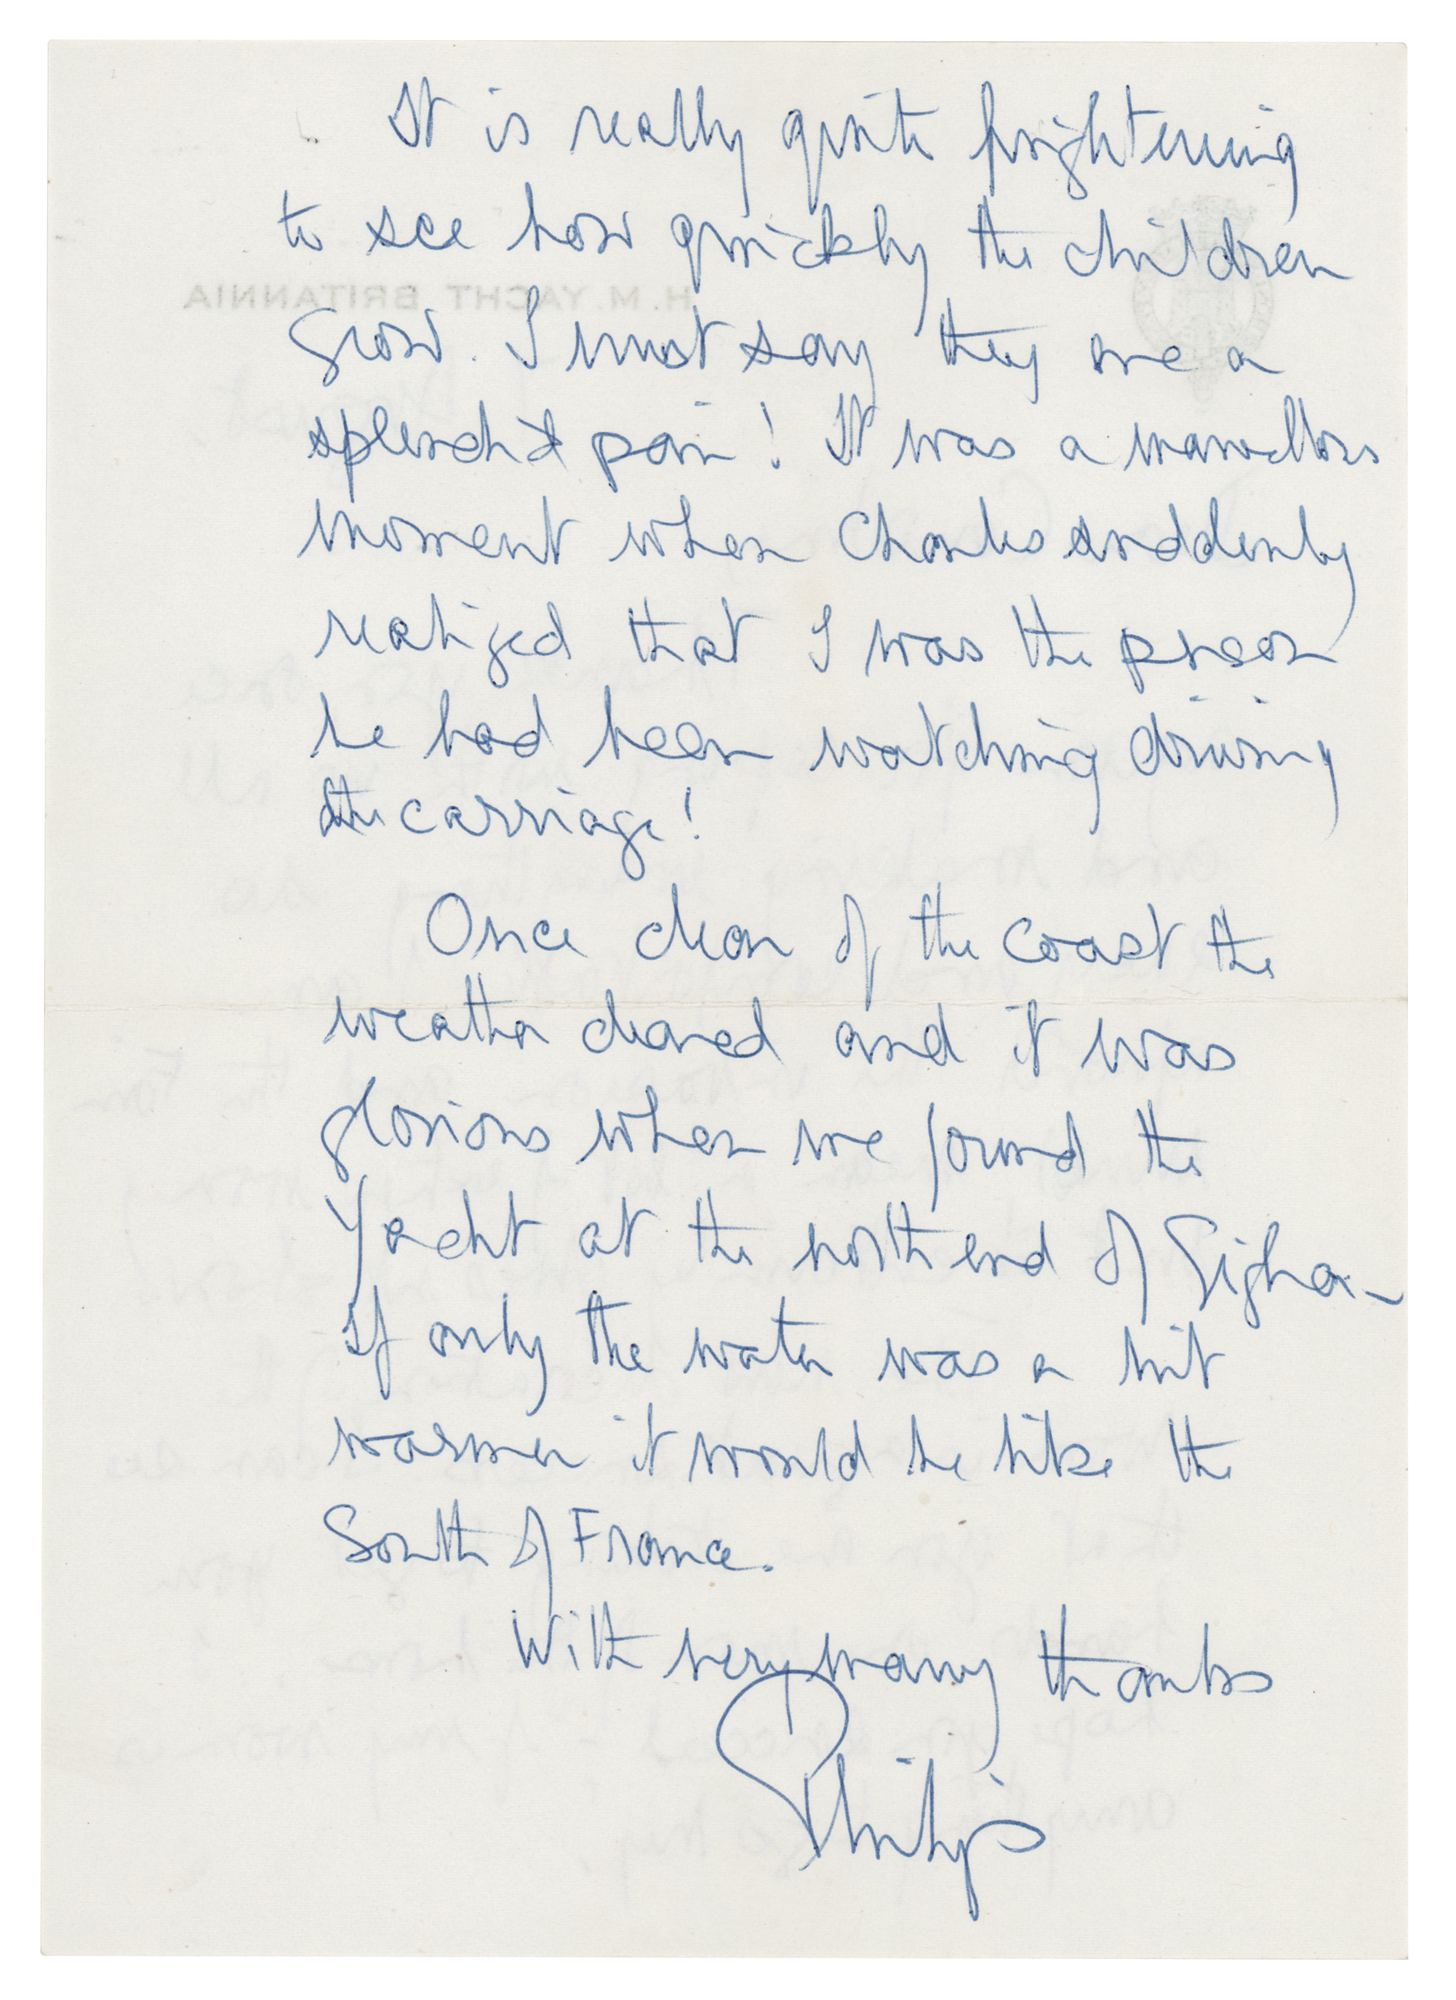 It is really quite frightening
to see how quickly the children
grow. I must say they are a
splendid pair! It was a marvellous
moment when Charles suddenly
realized that I was the person
he had been watching driving
the carriage!
Once clear of the coast the
weather cleared and it was
glorious when we found the
Yacht at the north end of Gigha –
If only the water was a bit
warmer it would be like the
South of France.
With very many thanks
Philip
H.M. YACHT BRITANNIA